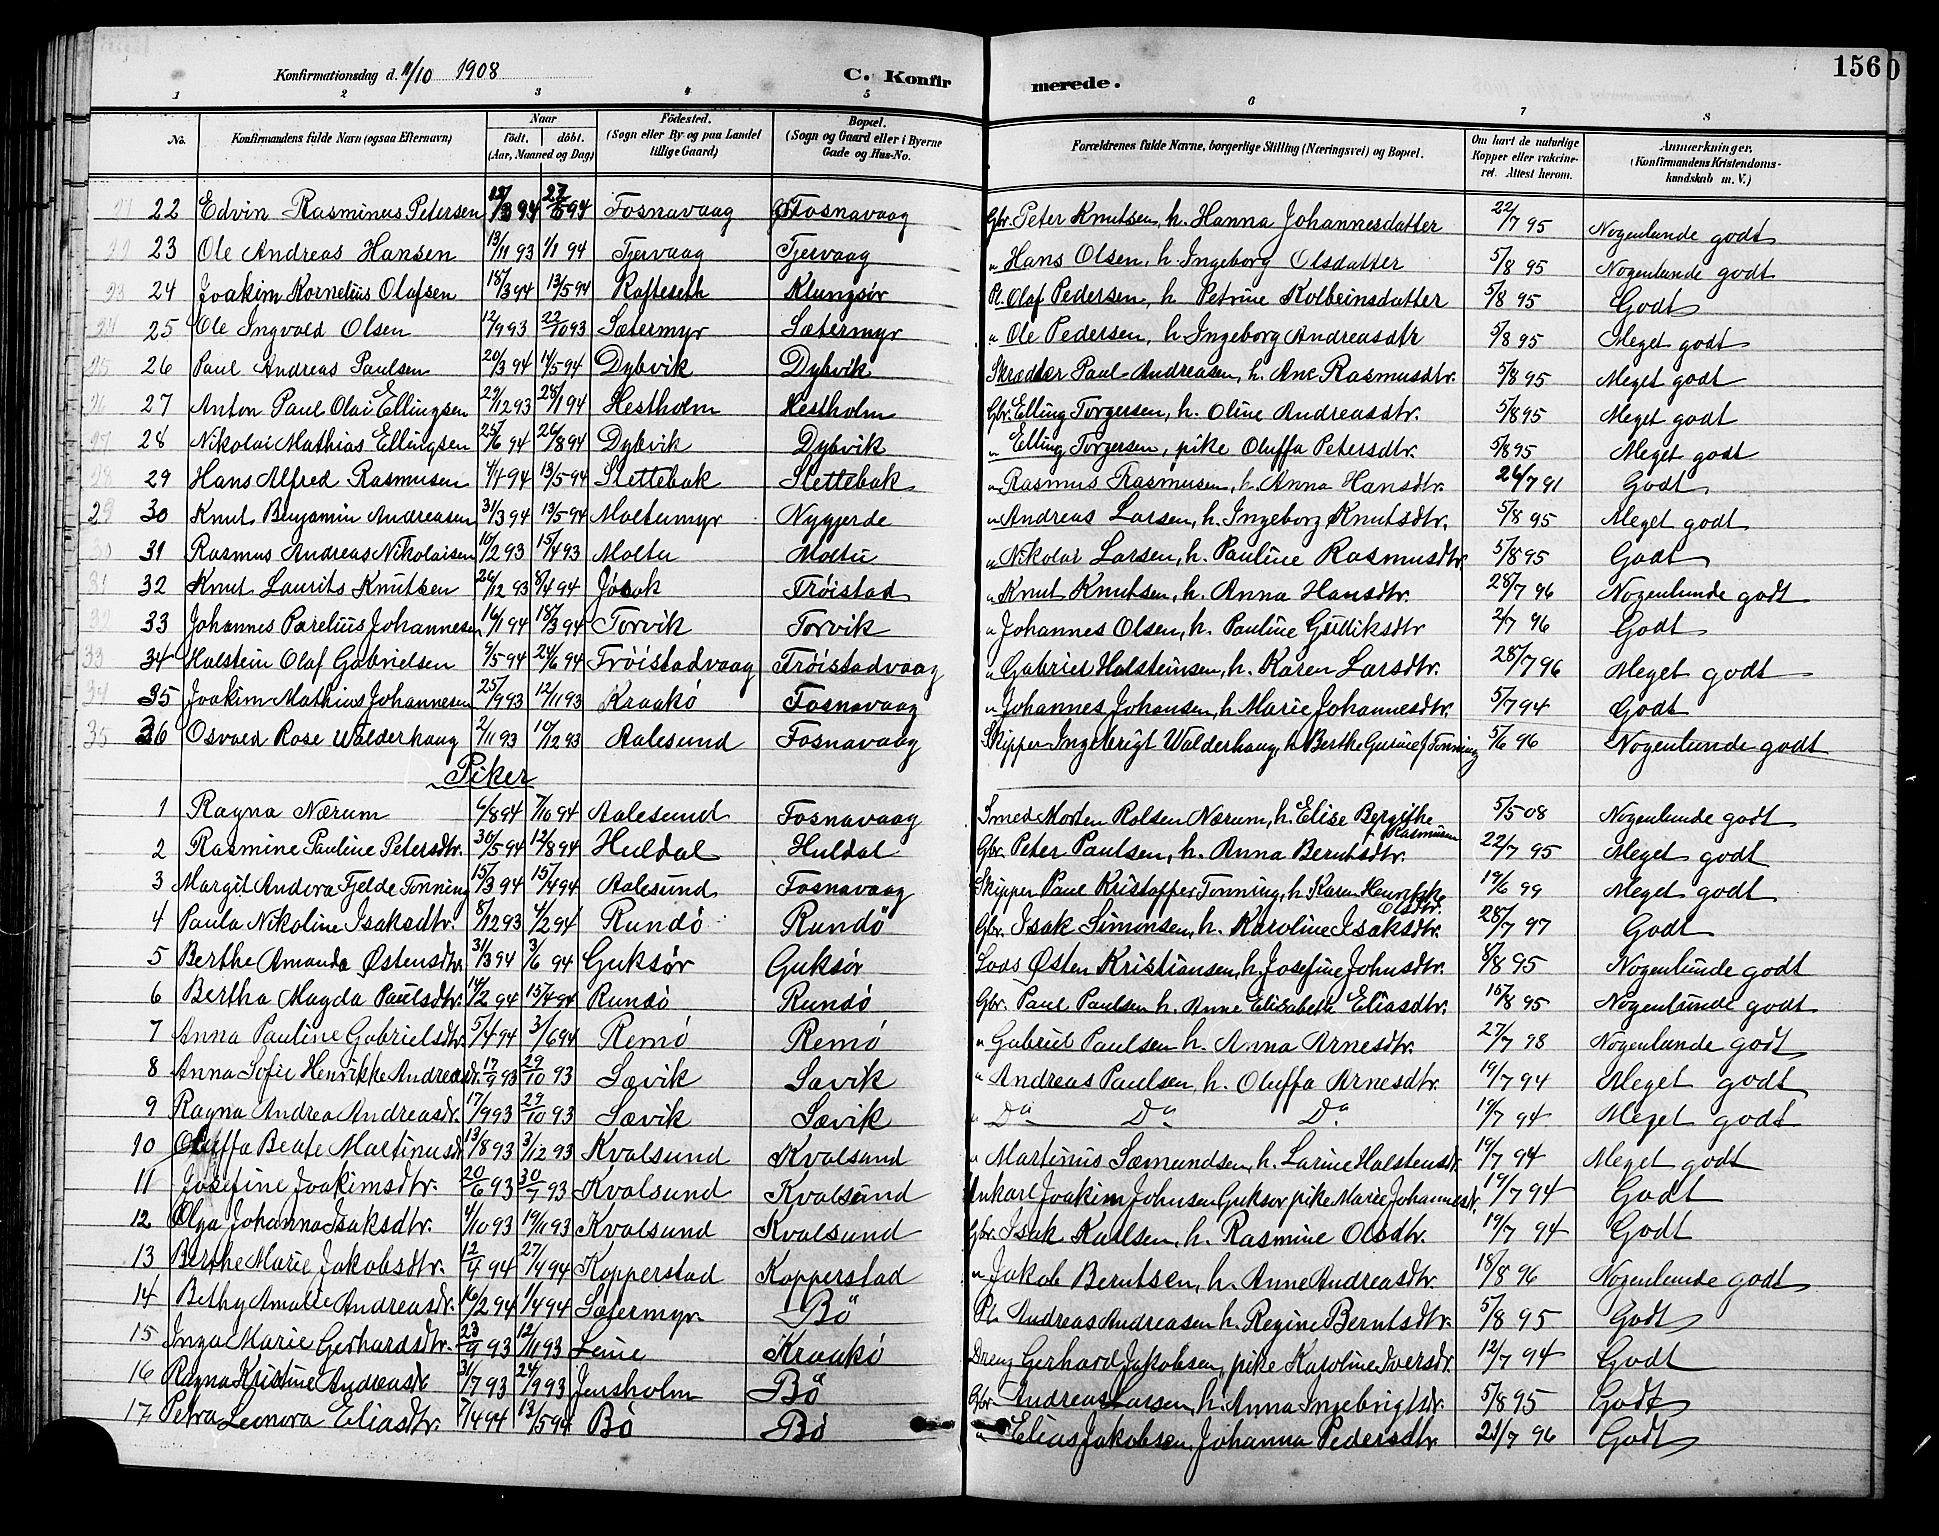 156
Konfirmationsdag d. 11/10 1908 C. Konfirmerede.
1 2 3 4 5 6 7 8
No. Konfirmandens fulde Navn (ogsaa Efternavn) Naar født, døbt. (Aar, Maaned og Dag) Fødested. (Sogn eller By og paa Landet tillige Gaard) Bopæl. (Sogn og Gaard eller i Byerne Gade og Hus-No. Forældrenes fulde Navne, borgerlige Stilling (Næringsvei) og Bopæl. Om havt de naturlige Kopper eller vakcineret. Attest herom. Anmærkninger. (Konfirmandens Kristendomskundskab m. V.)
22 Edvin Rasminus Petersen 94 94 Fosnavaag Fosnavaag Gbr. Peter Knutsen, h. Hanna Johannesdatter 22/7 95 Nogenlunde godt
23 Ole Andreas Hansen 13/11 93 1/1 94 Tjervaag Tjervaag " Hans Olsen, h. Ingeborg Olsdatter 5/8 95 Nogenlunde godt
24 Joakim Kornelius Olafsen 18/3 94 13/5 94 Rafteseth Klungsör Pl. Olaf Pedersen, h Petrine Kolbeinsdatter 5/8 95 Godt
25 Ole Ingvald Olsen 12/9 93 22/10 93 Sætermyr Sætermyr " Ole Pedersen, h Ingeborg Andreasdtr 5/8 95 Meget godt
26 Paul Andreas Paulsen 20/3 94 14/5 94 Dybvik Dybvik Skrædder Paul Andreasen, h. Ane Rasmusdtr. 5/8 95 Meget godt
27 Anton Paul Olai Ellingsen 29/12 93 28/1 94 Hestholm Hestholm Gbr. Elling Torgersen, h. Oline Andreasdtr. 5/8 95 Meget godt
28 Nikolai Mathias Ellingsen 25/6 94 26/8 94 Dybvik Dybvik " Elling Torgersen, pike Oluffa Petersdtr. 5/8 95 Meget godt
29 Hans Alfred Rasmusen 4/4 94 13/5 94 Slettebak Slettebak " Rasmus Rasmusen, h. Anna Hansdtr. 26/7 91 Godt
30 Knut Benjamin Andreasen 31/3 94 13/5 94 Moltumyr Nygjerde " Andreas Larsen, h. Ingeborg Knutsdtr. 5/8 95 Meget godt
31 Rasmus Andreas Nikolaisen 10/2 93 15/4 93 Moltu Moltu " Nikolai Larsen, h. Pauline Rasmusdtr. 5/8 95 Godt
32 Knut Laurits Knutsen 26/12 93 8/4 94 Jösok Tröistad " Knut Knutsen, h. Anna Hansdtr. 28/7 96 Nogenlunde godt
33 Johannes Parelius Johannesen 16/1 94 18/3 94 Torvik Torvik " Johannes Olsen, h. Pauline Gulliksdtr 2/7 96 Godt
34 Halstein Olaf Gabrielsen 9/5 94 24/6 94 Tröistadvaag Tröistadvaag " Gabriel Halsteinsen, h. Karen Larsdtr. 28/7 96 Meget godt
35 Joakim Mathias Johannesen 25/9 93 12/11 93 Kraakö Fosnavaag " Johannes Johansen, h Marie Johannesdtr. 5/7 94 Godt
36 Osvald Rose Walderhaug 2/11 93 10/12 93 Aalesund Fosnavaag Skipper Ingebrigt Walderhaug, h. Berthe Gurine f. Tonning 5/6 96 Nogenlunde godt
Piker
1 Ragna Nærum 6/8 94 7/10 94 Aalesund Fosnavaag Smed Morten Rolsen Nærum, h. Elise Bergithe Rasmusen 5/5 08 Nogenlunde godt
2 Rasmine Pauline Petersdtr. 30/5 94 12/8 94 Huldal Huldal Gbr. Peter Paulsen, h. Anna Berntsdtr. 22/7 95 Meget godt
3 Margit Andora Fjelde Tonning 15/3 94 15/4 94 Aalesund Fosnavaag Skipper Paul Kristoffer Tonning, h. Karen Olsdtr. 19/6 99 Meget godt
4 Paula Nikoline Isaksdtr. 8/12 93 4/2 94 Rundö Rundö Gbr. Isak Simonsen, h. Karoline Isaksdtr. 28/7 97 Godt
5 Berthe Amanda Østensdtr 31/3 94 3/6 94 Guksør Guksør Lods Østen Kristiansen, h. Josefine Johnsdtr. 8 95 Nogenlunde godt
6 Bertha Magda Paulsdtr. 14/2 94 15/4 94 Rundö Rundö Gbr. Paul Paulsen h. Anne Elisabeth Eliasdtr. 15/8 95 Nogenlunde godt
7 Anna Pauline Gabrielsdtr. 5/4 94 3/6 94 Remö Remö " Gabriel Paulsen h. Anna Arnesdtr. 27/7 98 Nogenlunde godt
8 Anna Sofie Henrikke Andreasdtr. 17/9 93 29/10 93 Sævik Sævik " Andreas Paulsen h. Oluffa Arnesdtr. 19/7 94 Meget godt
9 Ragna Andrea Andreasdtr. 17/9 93 29/10 93 Sævik Sævik " Do Do Do 19/7 94 Meget godt
10 Oluffa Beate Martinusdtr 13/8 93 3/12 93 Kvalsund Kvalsund " Martinus Sæmundsen, h. Larine Halstensdtr. 19/7 94 Meget godt
11 Josefine Joakimsdtr. 20/6 93 30/7 93 Kvalsund Kvalsund Unkarl Joakim Johnsen Guksør pike Marie Johannesdtr. 19/7 94 Godt
12 Olga Johanna Isaksdtr. 4/10 93 19/11 93 Kvalsund Kvalsund Gbr. Isak Karlsen, h. Rasmine Olsdtr. 19/7 94 Godt
13 Berthe Marie Jakobsdtr. 94 27/4 94 Kopperstad Kopperstad " Jakob Berntsen, h. Anne Andreasdtr 18/8 96 Nogenlunde godt
14 Bethy Amalie Andreasdtr. 16/2 94 1/4 94 Sætermyr Bö Pl. Andreas Andreasen h. Regine Berntsdtr. 5/8 95 Godt
15 Inga Marie Gerhardsdtr. 23/9 93 12/11 93 Leine Kraakö Dreng Gerhard Jakobsen, pike Karoline Iversdtr. 12/7 94 Godt
16 Ragna Kristine Andreasdtr 31/7 93 24/9 93 Jensholm Bö Gbr. Andreas Larsen, h. Anna Ingebrigtsdtr. 5/8 95 Godt
17 Petra Leonora Eliasdtr. 7/4 94 13/5 94 Bö Bö " Elias Jakobsen, Johanna Pedersdtr. 21/7 96 Godt